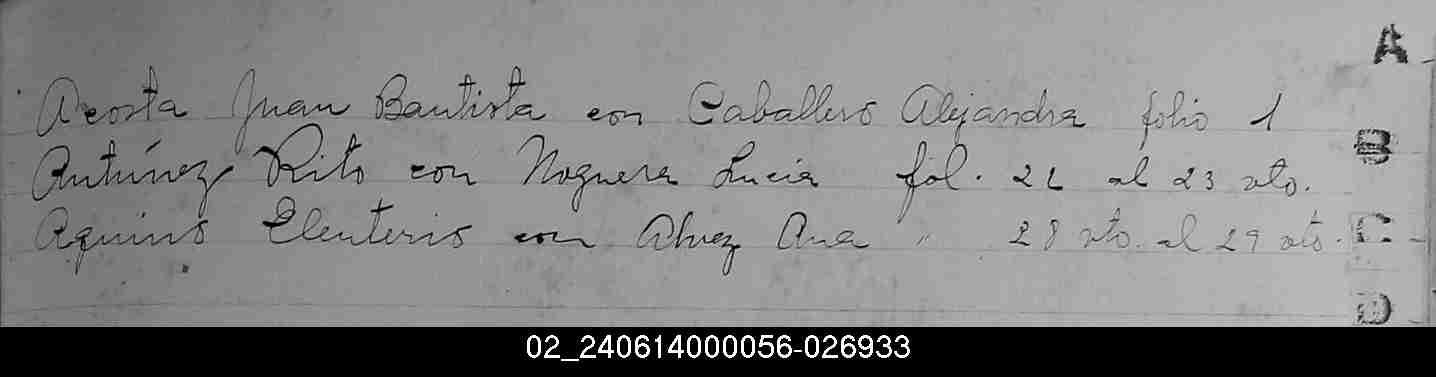 A
Acosta Juan Bautista con Caballero Alejandra folio 1
B
Antúnez Rito con Noguera Lucia fol. 22 al 23 vto.
Aquino Eleuterio con Alvez Ana " 28 vto. al 29 vto.
C
D
02_240614000056-026933